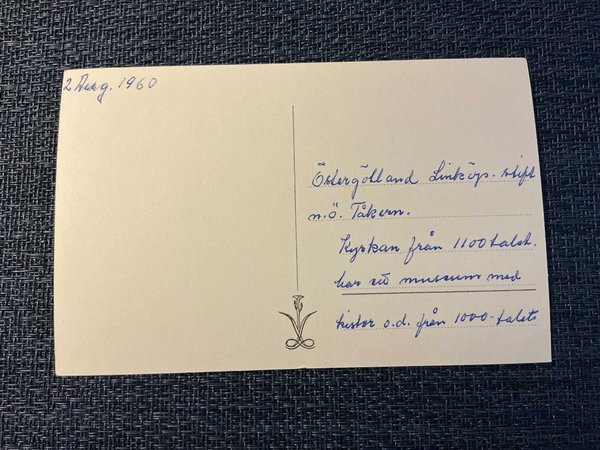 2 Aug. 1960
Östergötland Linköp. stift
n.ö. Tåkern.
Kyrkan från 1100 talet.
har museum med
kistor o.d. från 1000-talet